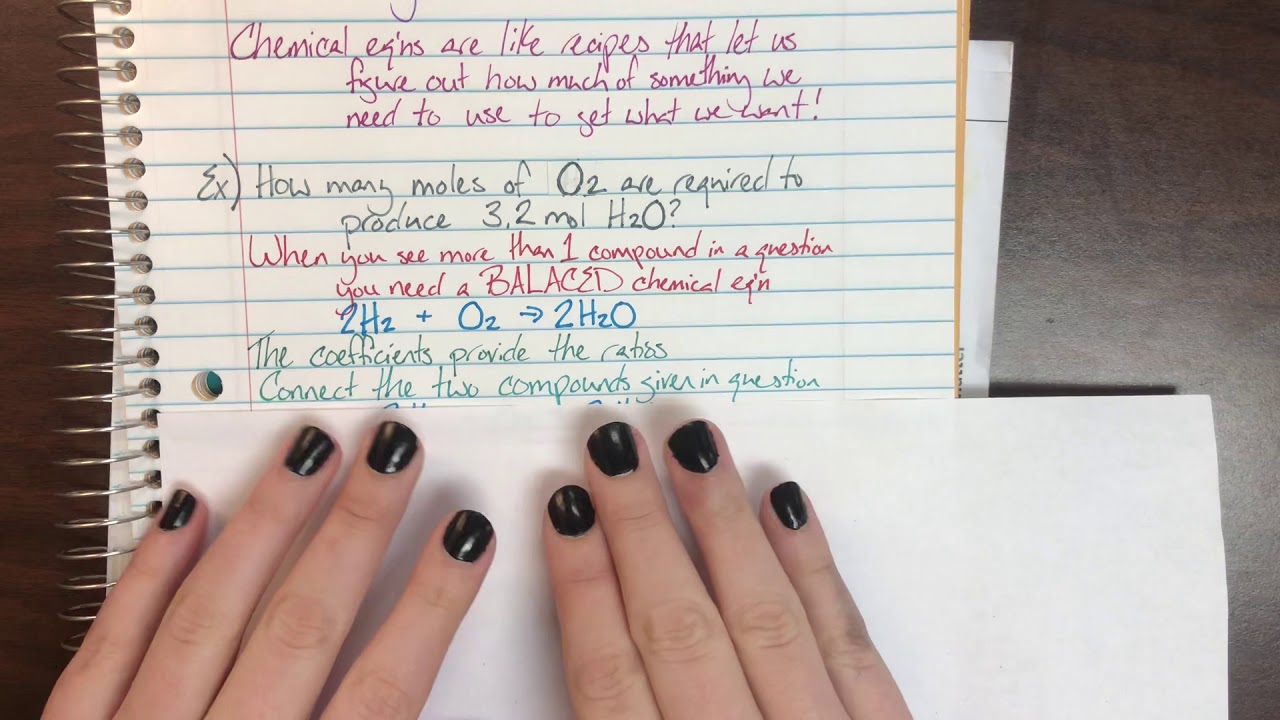 Chemical eq'ns are like recipes that let us
figure out how much of something we
need to use to get what we want!
Ex) How many moles of O2 are required to
produce 3.2 mol H2O?
When you see more than 1 compound in a question
you need a BALACED chemical eq'n
2H2 + O2 → 2H2O
The coefficients provide the ratios
Connect the two compounds given in question